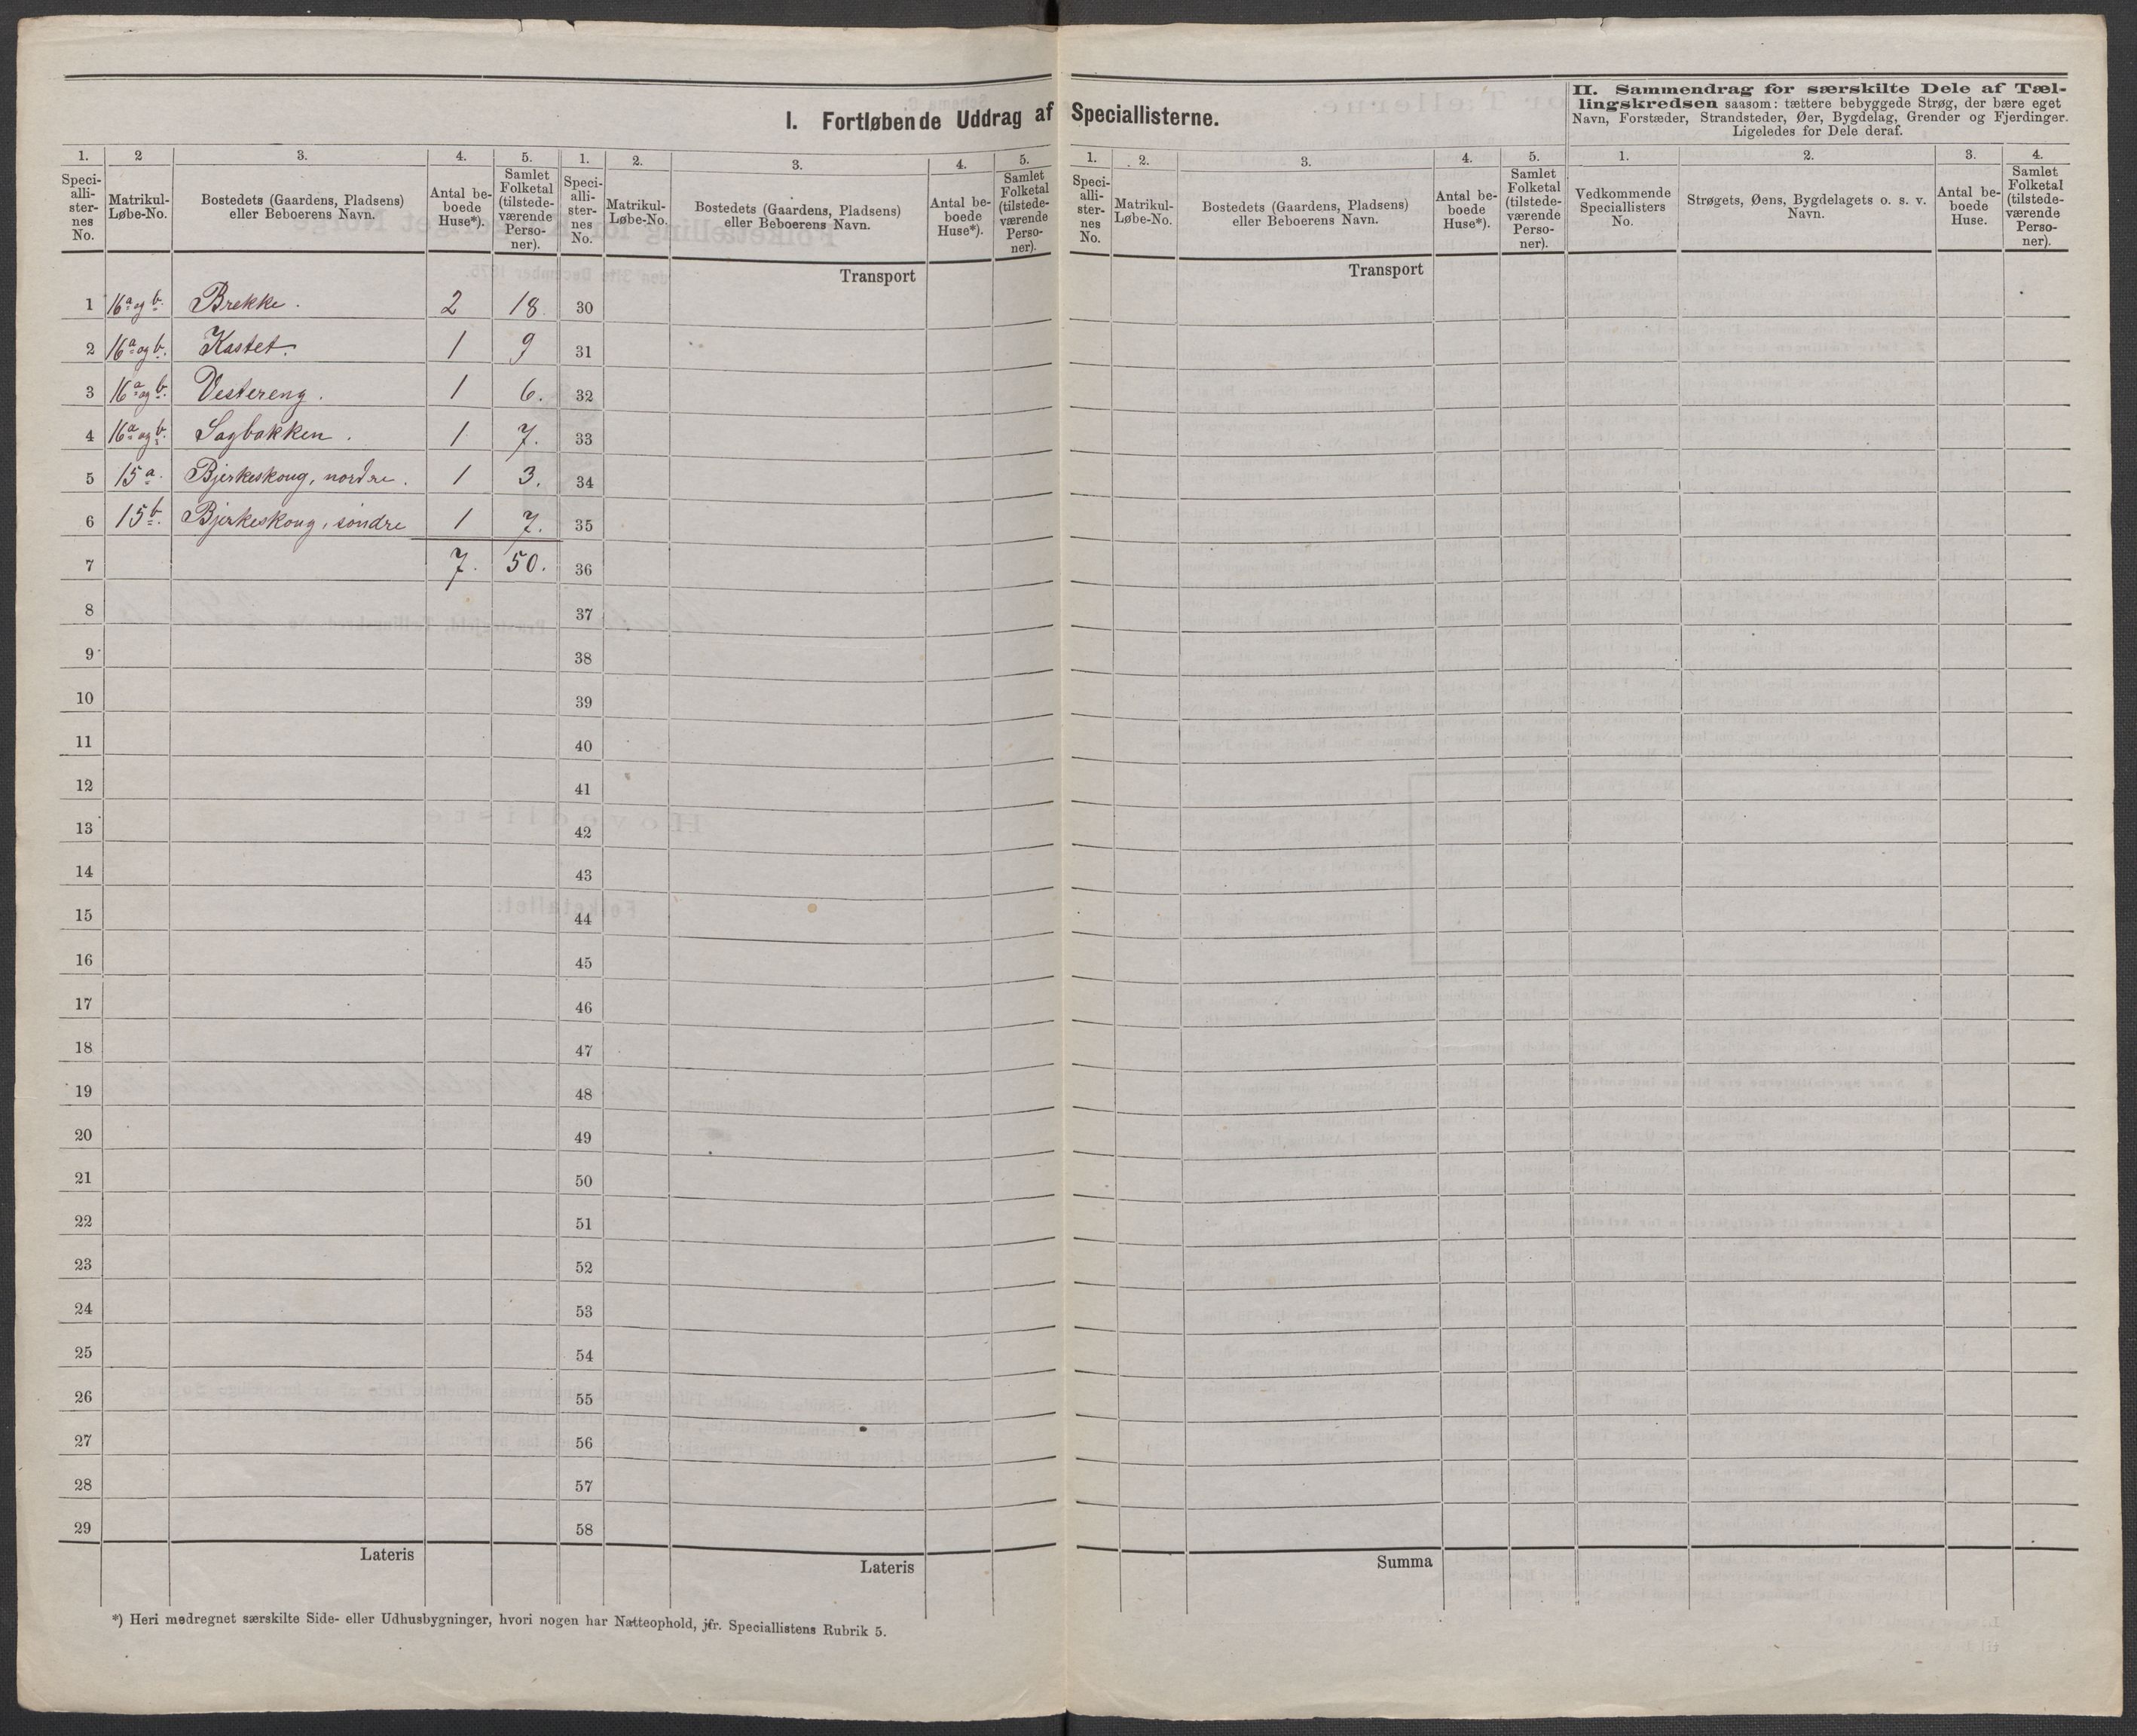 I. Fortløbende Uddrag af Speciallisterne.
II. Sammendrag for særskilte Dele af Tæl-
lingskredsen saasom: tættere bebyggede Strøg, der bære eget
Navn, Forstæder, Strandsteder, Øer, Bygdelag, Grender og Fjerdinger.
Ligeledes for Dele deraf.
1. 2 3. 4. 5. 1. 2. 3. 4. 5. 1. 2. 3. 4. 5. 1. 2. 3. 4.
Speci-
alli-
ster-
nes
No.
Matrikul-
Løbe-No.
Bostedets (Gaardens, Pladsens)
eller Beboerens Navn.
Antal be-
boede
Huse*).
Samlet
Folketal
(tilstede-
værende
Perso-
ner).
Speci-
alli-
ster-
nes
No.
Matrikul-
Løbe-No.
Bostedets (Gaardens, Pladsens)
eller Beboerens Navn.
Antal be-
boede
Huse*).
Samlet
Folketal
(tilstede-
værende
Perso-
ner).
Speci-
alli-
ster-
nes
No.
Matrikul-
Løbe-No.
Bostedets (Gaardens, Pladsens)
eller Beboerens Navn.
Antal be-
boede
Huse*).
Samlet
Folketal
(tilstede-
værende
Perso-
ner).
Vedkommende
Speciallisters
No.
Strøgets, Øens, Bygdelagets o. s. v.
Navn.
Antal be-
boede
Huse.
Samlet
Folketal
(tilstede-
værende
Perso-
ner).
Transport Transport
1 16a og b. Brekke. 2 18. 30
2 16a og b. Kastet. 1 9 31
3 16a og b. Vestereng. 1 6. 32
4 16a og b. Sagbakken. 1 7. 33
5 15a. Bjerkeskoug, nordre. 1 3. 34
6 15b. Bjerkeskoug, søndre 1 7. 35
7 7. 50. 36
8 37
9 38
10 39
11 40
12 41
13 42
14 43
15 44
16 45
17 46
18 47
19 48
20 49
21 50
22 51
23 52
24 53
25 54
26 55
27 56
28 57
29 58
Lateris Lateris Summa
*) Heri medregnet særskilte Side- eller Udhusbygninger, hvori nogen har Natteophold, jfr. Speciallistens Rubrik 5.